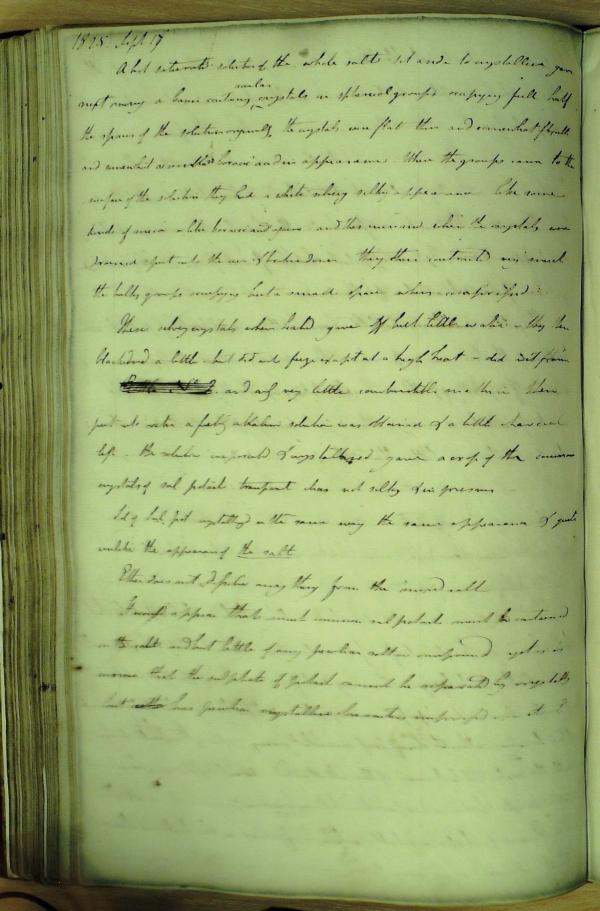 1825 Sept 17
A hot saturated solution of the whole salts set aside to crystallize gave
next morning a basin containing similar crystals in spherical groups occupying full half
the space of the solution originally the crystals were flat thin and somewhat
and somewhat like boracic acid in appearance Where the groups came to the
surface of the solution they had a white silvery silky appearance like some
kinds of mica or like boracic acid and this increased when the crystals were
drained apart into the air & broken down they then contracted very much
the bulky groups occupying but a small space when
These silvery crystals when heated gave off but little water - they then
blackened a little but did not fuse except at a high heat - did not
and only very little combustible matter in them
put into water a feebly alkaline solution was obtained & a little charcoal
left - the solution evaporated & crystallized gave a crop of the common
crystals of sul potash transparent clear not silky
Sol of Sul pot crystallized in the same way the same appearance & quite
unlike the appearance of the salt
Ether does not dissolve any thing from the mixed salt
It would appear that much common sul potash must be contained
in the salt and but little of any peculiar salt or compound yet it is
curious that the sulphate of potash cannot be separated by crystalln
but has peculiar crystalline characters impressed upon it ?